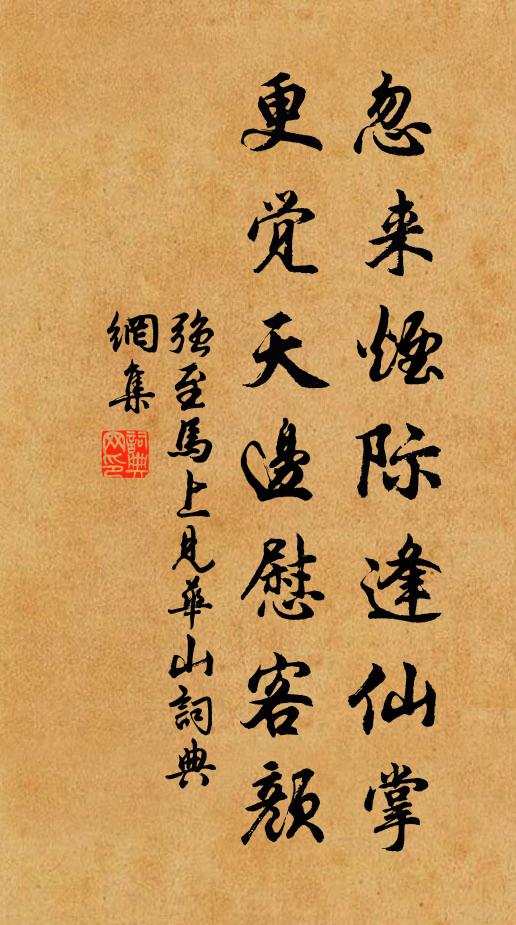 忽来煙际逢仙掌
更觉天邊慰客颜
強至馬上見華山詞典
網集
詞典
网印